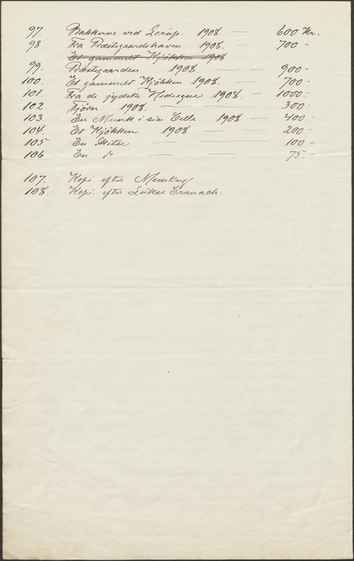 97. Bakkerne ved Lerup 1908 — 600 Kr.
98 Fra Præstgaardshaven 1908. 700 -
Et gammelt Kjökken 1908
99. Præstgaarden 1908 900 -
100. Et gammelt Kjökken 1908. 700 -
101 Fra de jydske 1908 — 1000 -
102 1908 — 300 -
103. En Munk i sin Celle 1908 — 400 -
104. Et Kjökken 1908 200 -
105 En Skitse 100 -
106 En 75 -
107. Kopi efter
108. Kopi efter Lukas Cranach.